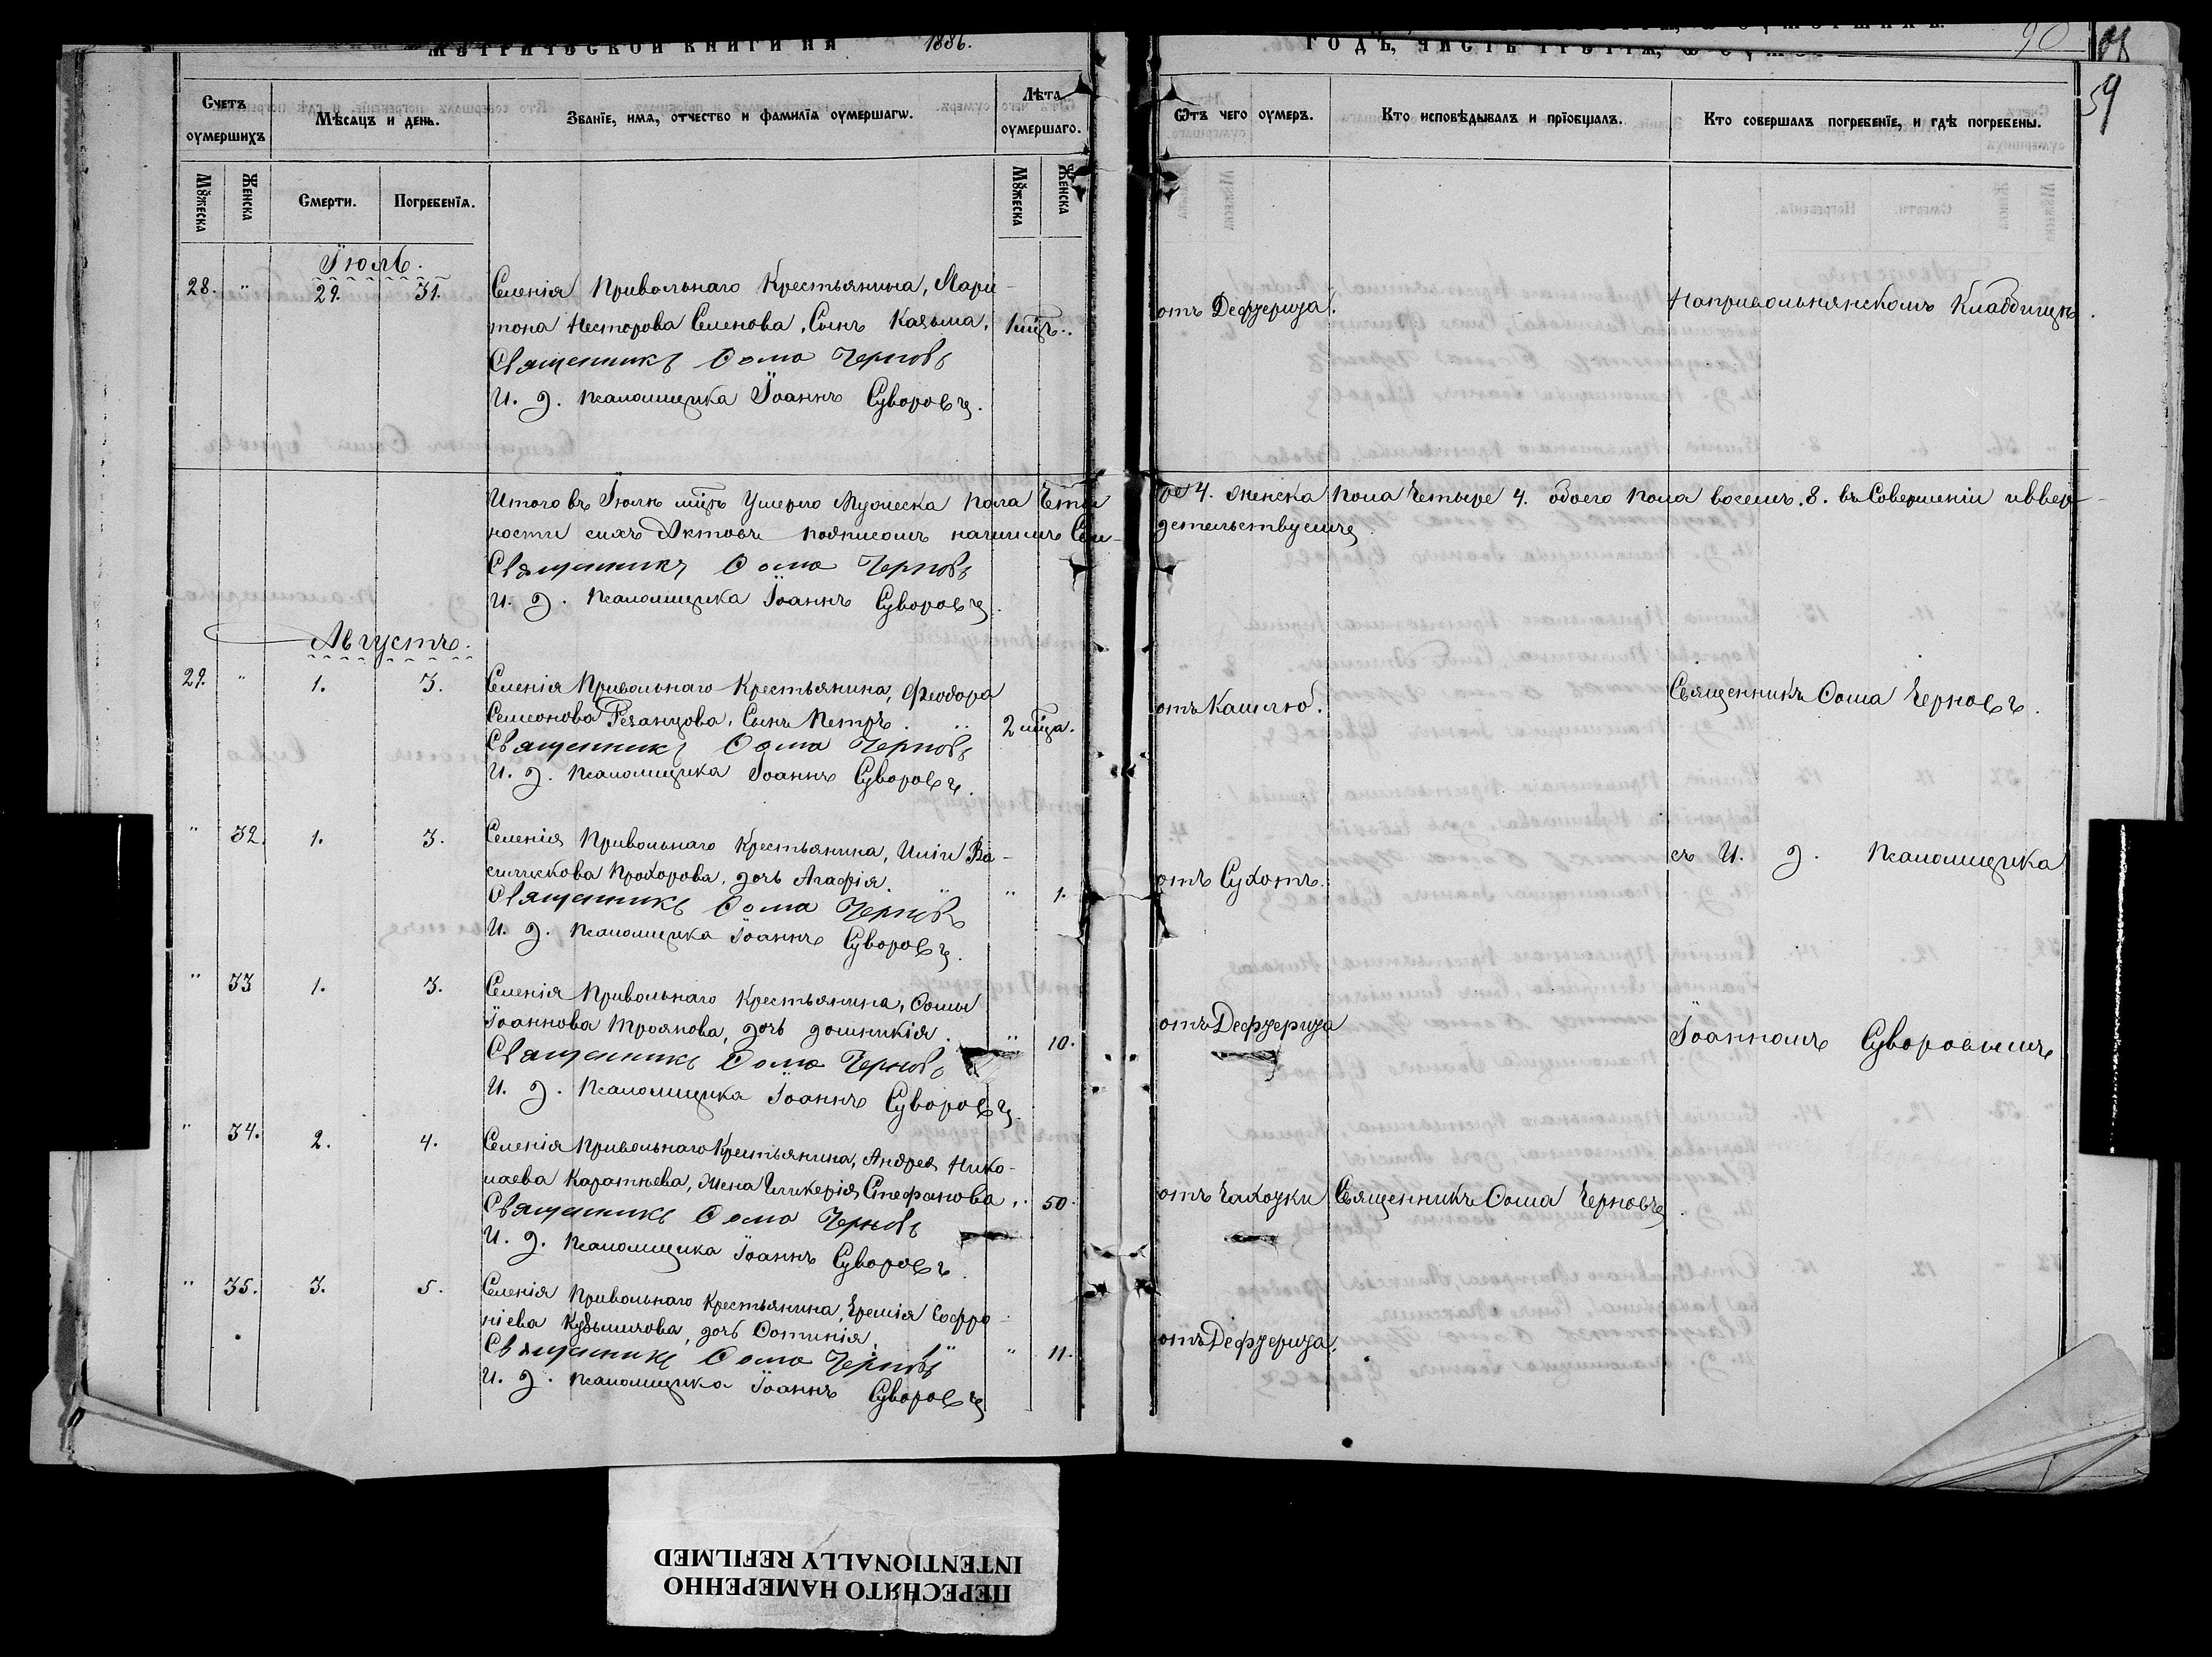 МЕТРИЧЕСКОЙ КНИГИ НА 1886.
ГОДЪ, ЧАСТЬ ТРЕТІЯ,
90
59
Счетъ оумершихъ
Мѣсяцъ и день.
Званіе, имя, отчество и фамилія оумершагѡ.
Лѣта оумершаго.
Ѿтъ чего оумеръ.
Кто исповѣдывалъ и пріобщалъ.
Кто совершалъ погребеніе, и гдѣ погребены.
Мꙋжеска
Женска
Смерти.
Погребенія.
Мꙋжеска
Женска
Іюль.
28. " 29. 31. Селенія Привольнаго Крестьянина, Мари-
тона Несторова Семенова, Сынъ Казьма. 1 мцъ. отъ Дефтерита. На привольнянскомъ Кладбищѣ.
Священникъ Ѳома Черновъ
И. д. псаломщика Іоаннъ Суворовъ.
Итого въ Іюлѣ мцѣ Умерло Мужеска пола Четы
ре 4. женска пола Четыре 4. обоего пола восемь. 8. въ Совершеніи и вѣр-
ности сихъ Актовъ подписомъ нашимъ Сви-
детельствуемъ
Священникъ Ѳома Черновъ
И. д. псаломщика Іоаннъ Суворовъ.
Августъ.
29. " 1. 3. Селенія Привольнаго Крестьянина, Феодора
Семионова Резанцова, Сынъ Петръ. 2 мца. отъ Кашлю. Священникъ Ѳома Черновъ.
Священникъ Ѳома Черновъ
И. д. псаломщика Іоаннъ Суворовъ.
" 32. 1. 3. Селенія Привольнаго Крестьянина, Иліи Ва-
силискова Прохорова, дочь Агафія. " 1. отъ Сухотъ. съ И. д. псаломщика
Священникъ Ѳома Черновъ
И. д. псаломщика Іоаннъ Суворовъ.
" 33 1. 3. Селенія Привольнаго Крестьянина, Ѳомы
Іоаннова Троянова, дочь домникія. " 10. отъ Дефтерита Іоанномъ Суворовымъ
Священникъ Ѳома Черновъ
И. д. псаломщика Іоаннъ Суворовъ.
" 34. 2. 4. Селенія Привольнаго Крестьянина, Андрея Нико-
лаева Каратнева, жена Гликерія Стефанова. 50. отъ Чахотки Священникъ Ѳома Черновъ.
Священникъ Ѳома Черновъ
И. д. псаломщика Іоаннъ Суворовъ.
" 35. 3. 5. Селенія Привольнаго Крестьянина, Еремія Софро-
ніева Кузьмичова, дочь Фотинія. " 11. отъ Дефтерита.
Священникъ Ѳома Черновъ
И. д. псаломщика Іоаннъ Суворовъ
ПЕРЕСНЯТО НАМЕРЕННО
INTENTIONALLY REFILMED